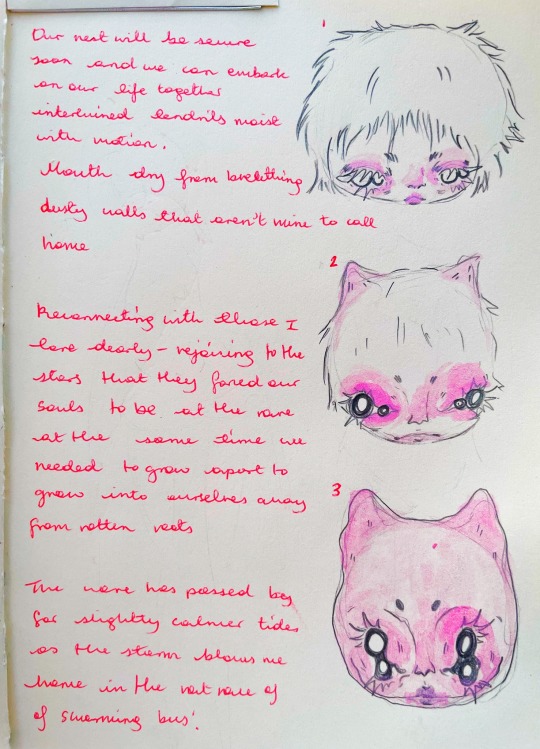 Our nest will be secure
soon and we can embark
on our life together
intertwined tendrils moist
with motion.
Mouth dry from breathing
dusty walls that aren't mine to call
home
Reconnecting with those I
love dearly – rejoicing to the
stars that they fared our
souls to be at the
at the same time we
needed to grow apart to
grow into ourselves away
from rotten roots
The wave has passed by
for slightly calmer tides
as the storm blows me
home in the of
of swarming
1
2
3